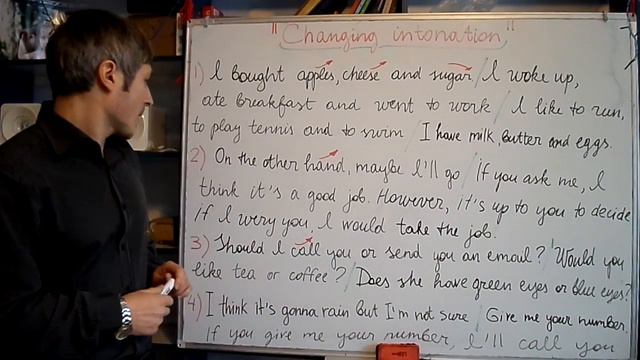 "Changing intonation"
1) I bought apples, cheese and sugar / I woke up,
ate breakfast and went to work / I like to run,
to play tennis and to swim / I have milk, butter and eggs.
2) On the other hand, maybe I'll go / If you ask me, I
think it's a good job. However, it's up to you to decide
if I wery you, I would take the job.
3) Should I call you or send you an email? / Would you
like tea or coffee? / Does she have green eyes or blue eyes?
4) I think it's gonna rain but I'm not sure / Give me your number.
If you give me your number, I'll call you